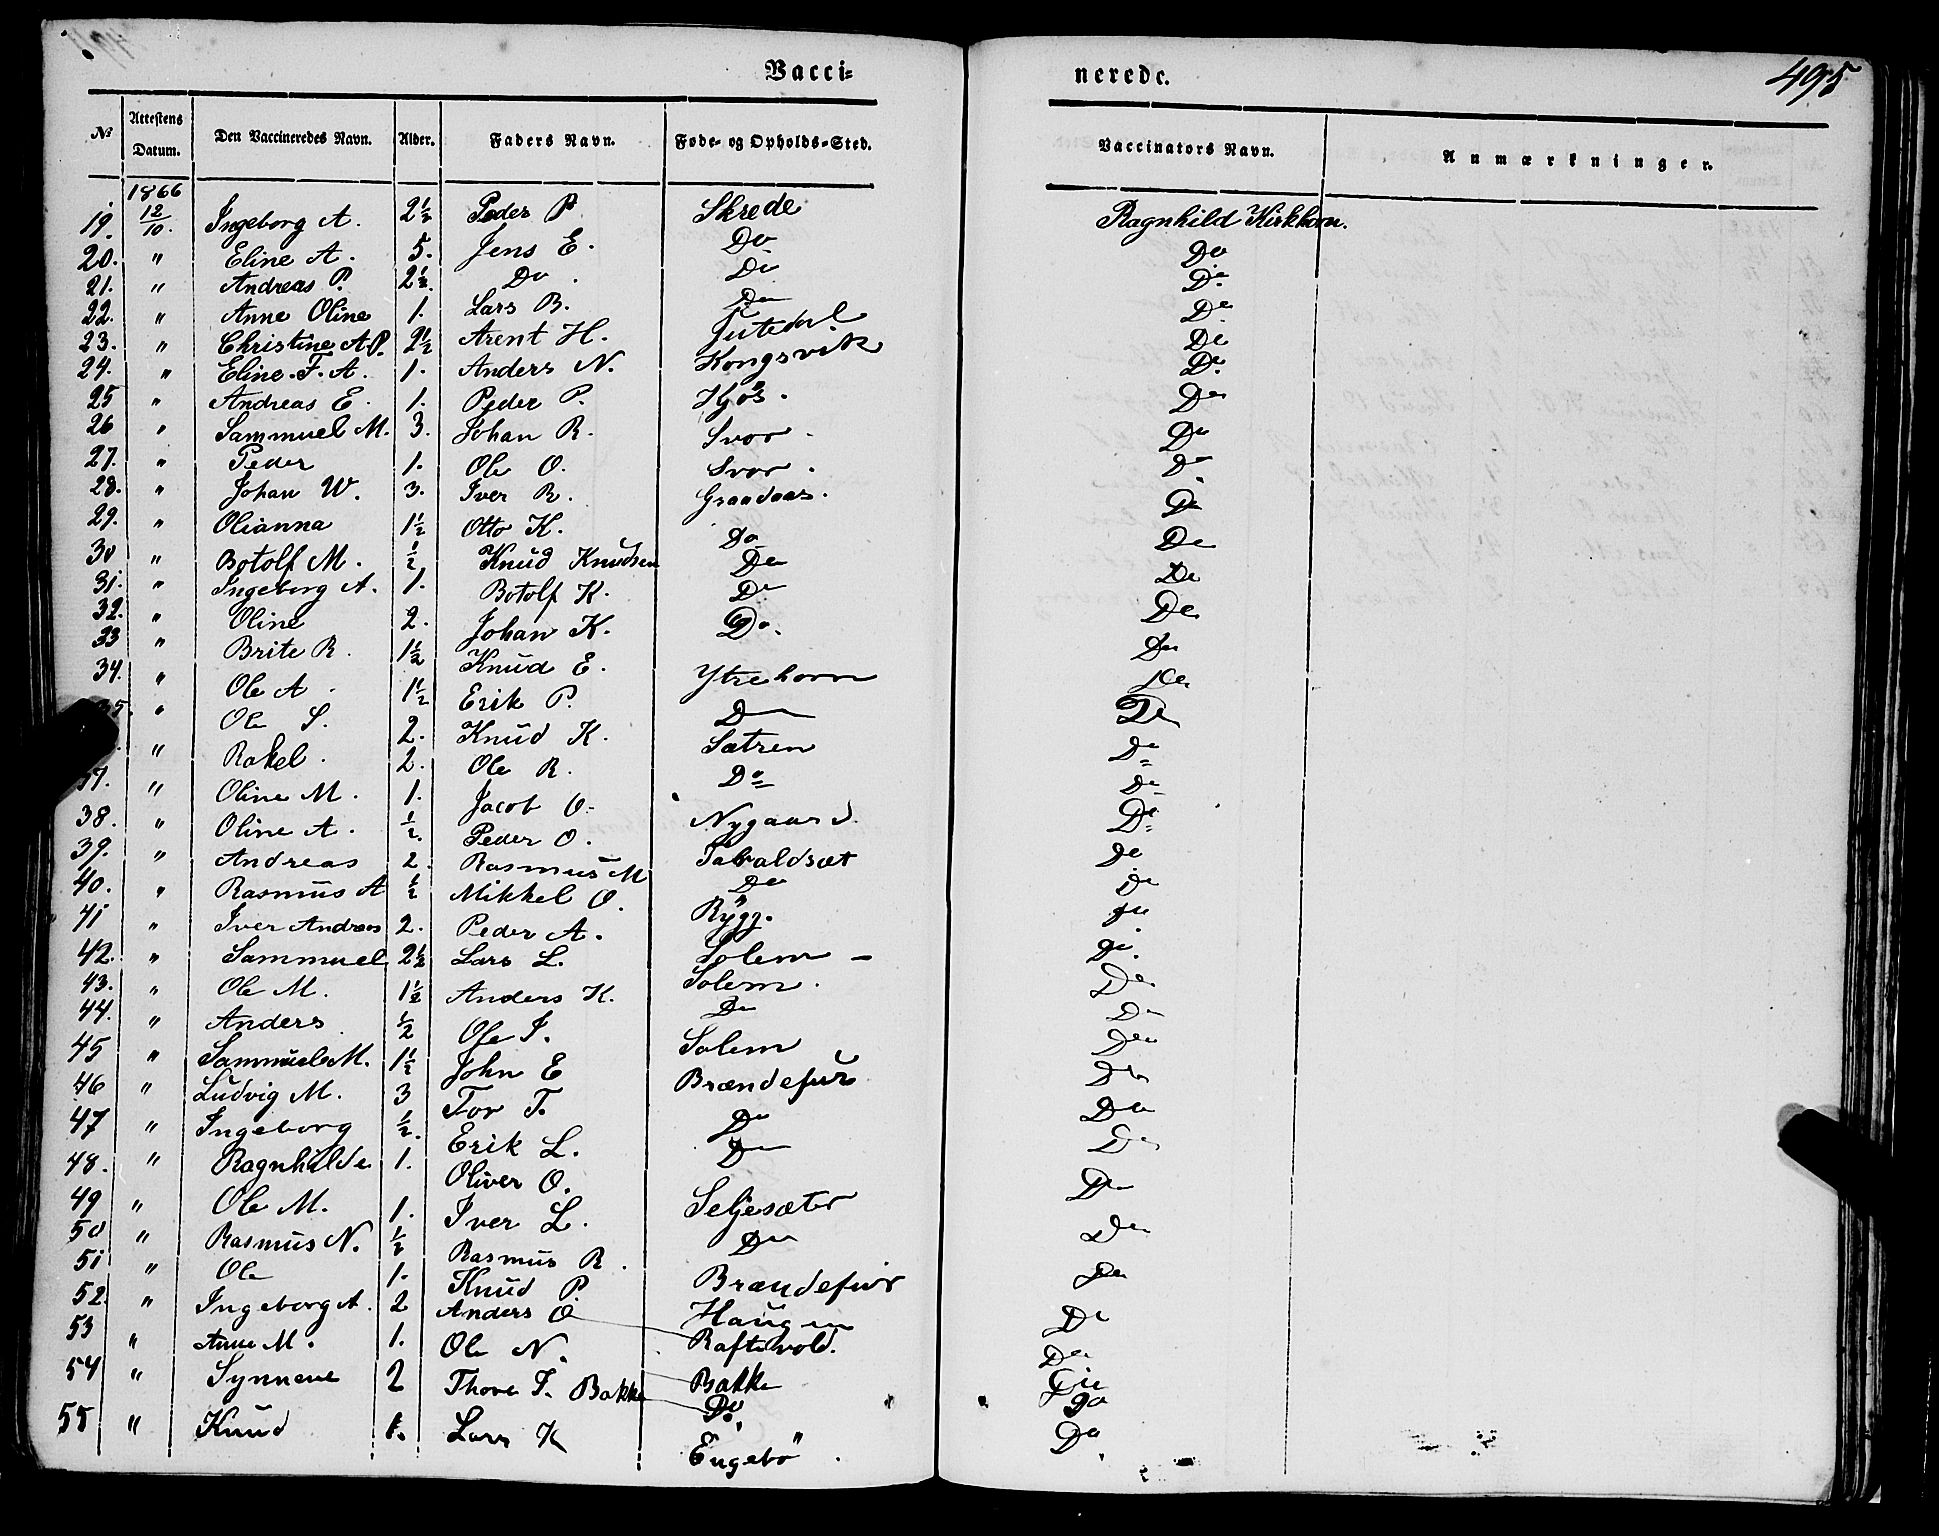 Vacci-
nerede.
495
No
Attestens Datum.
Den Vaccineredes Navn.
Alder.
Faders Navn.
Føde- og Opholds-Sted.
Vaccinators Navn.
Anmærkninger.
1866
19. 12/10. Ingeborg A. 2½ Peder P. Skrede Ragnhild Kirkhorn.
20. " Eline A. 5. Jens E. Do Do
21. " Andreas P. 2½. Do. Do Do
22. " Anne Oline 1. Lars B. Do Do
23. " Christine A.P. 2½ Arent H. Jutedal Do
24. " Eline. F. A. 1. Anders N. Kongsvik Do
25 " Andreas E. 1. Peder P. Hjøs. Do
26 " Sammuel M. 3. Johan R. Svor. Do
27. " Peder 1. Ole O. Svor. Do
28. " Johan W. 3. Iver R. Grandaas. Do
29. " Olianna 1½ Otto K. Do Do
30 " Botolf M. ½ Knud Knudsen Do Do
31. " Ingeborg A. 1. Botolf K. Do Do
32. " Oline 2. Johan K. Do. Do
33 " Brite R. 1½ Knud E. Ytrehorn Do
34. " Ole A. 1½ Erik P. Do Do
35. " Ole S. 2. Knud K. Sætren Do
" Rakel. 2. Ole R. Do Do
37. " Oline M. 1. Jacob O. Nygaard. Do
38. " Oline A. ½. Peder O. Taraldsæt Do
39. " Andreas 2. Rasmus M Do Do
40. " Rasmus A ½ Mikkel O. Rygg. Do
41 " Iver Andreas 2. Peder A. Solem - Do
42. " Sammuel 2½ Lars L. Solem. Do
43. " Ole M. 1½ Anders K. Do Do
44. " Anders ½ Ole I. Solem Do
45 " Sammuel M. 1½ John E Brændefur Do
46 " Ludvig M. 3 Tor T. Do Do
47 " Ingeborg ½. Erik L. Do Do
48. " Ragnhilde 1. Oliver O. Seljesæter Do
49 " Ole M. 1. Iver L. Do Do
50 " Rasmus N. ½ Rasmus R. Brændefur Do
51 " Ole 1. Knud P. Haugen Do
52. " Ingeborg A. 2 Anders O Raftevold. Do
53 " Anne M. 1. Ole N. Bakke Do
54 " Synneve 2 Thore I. Bakke Do. Do
55 " Knud 1. Lars K Engebø. Do